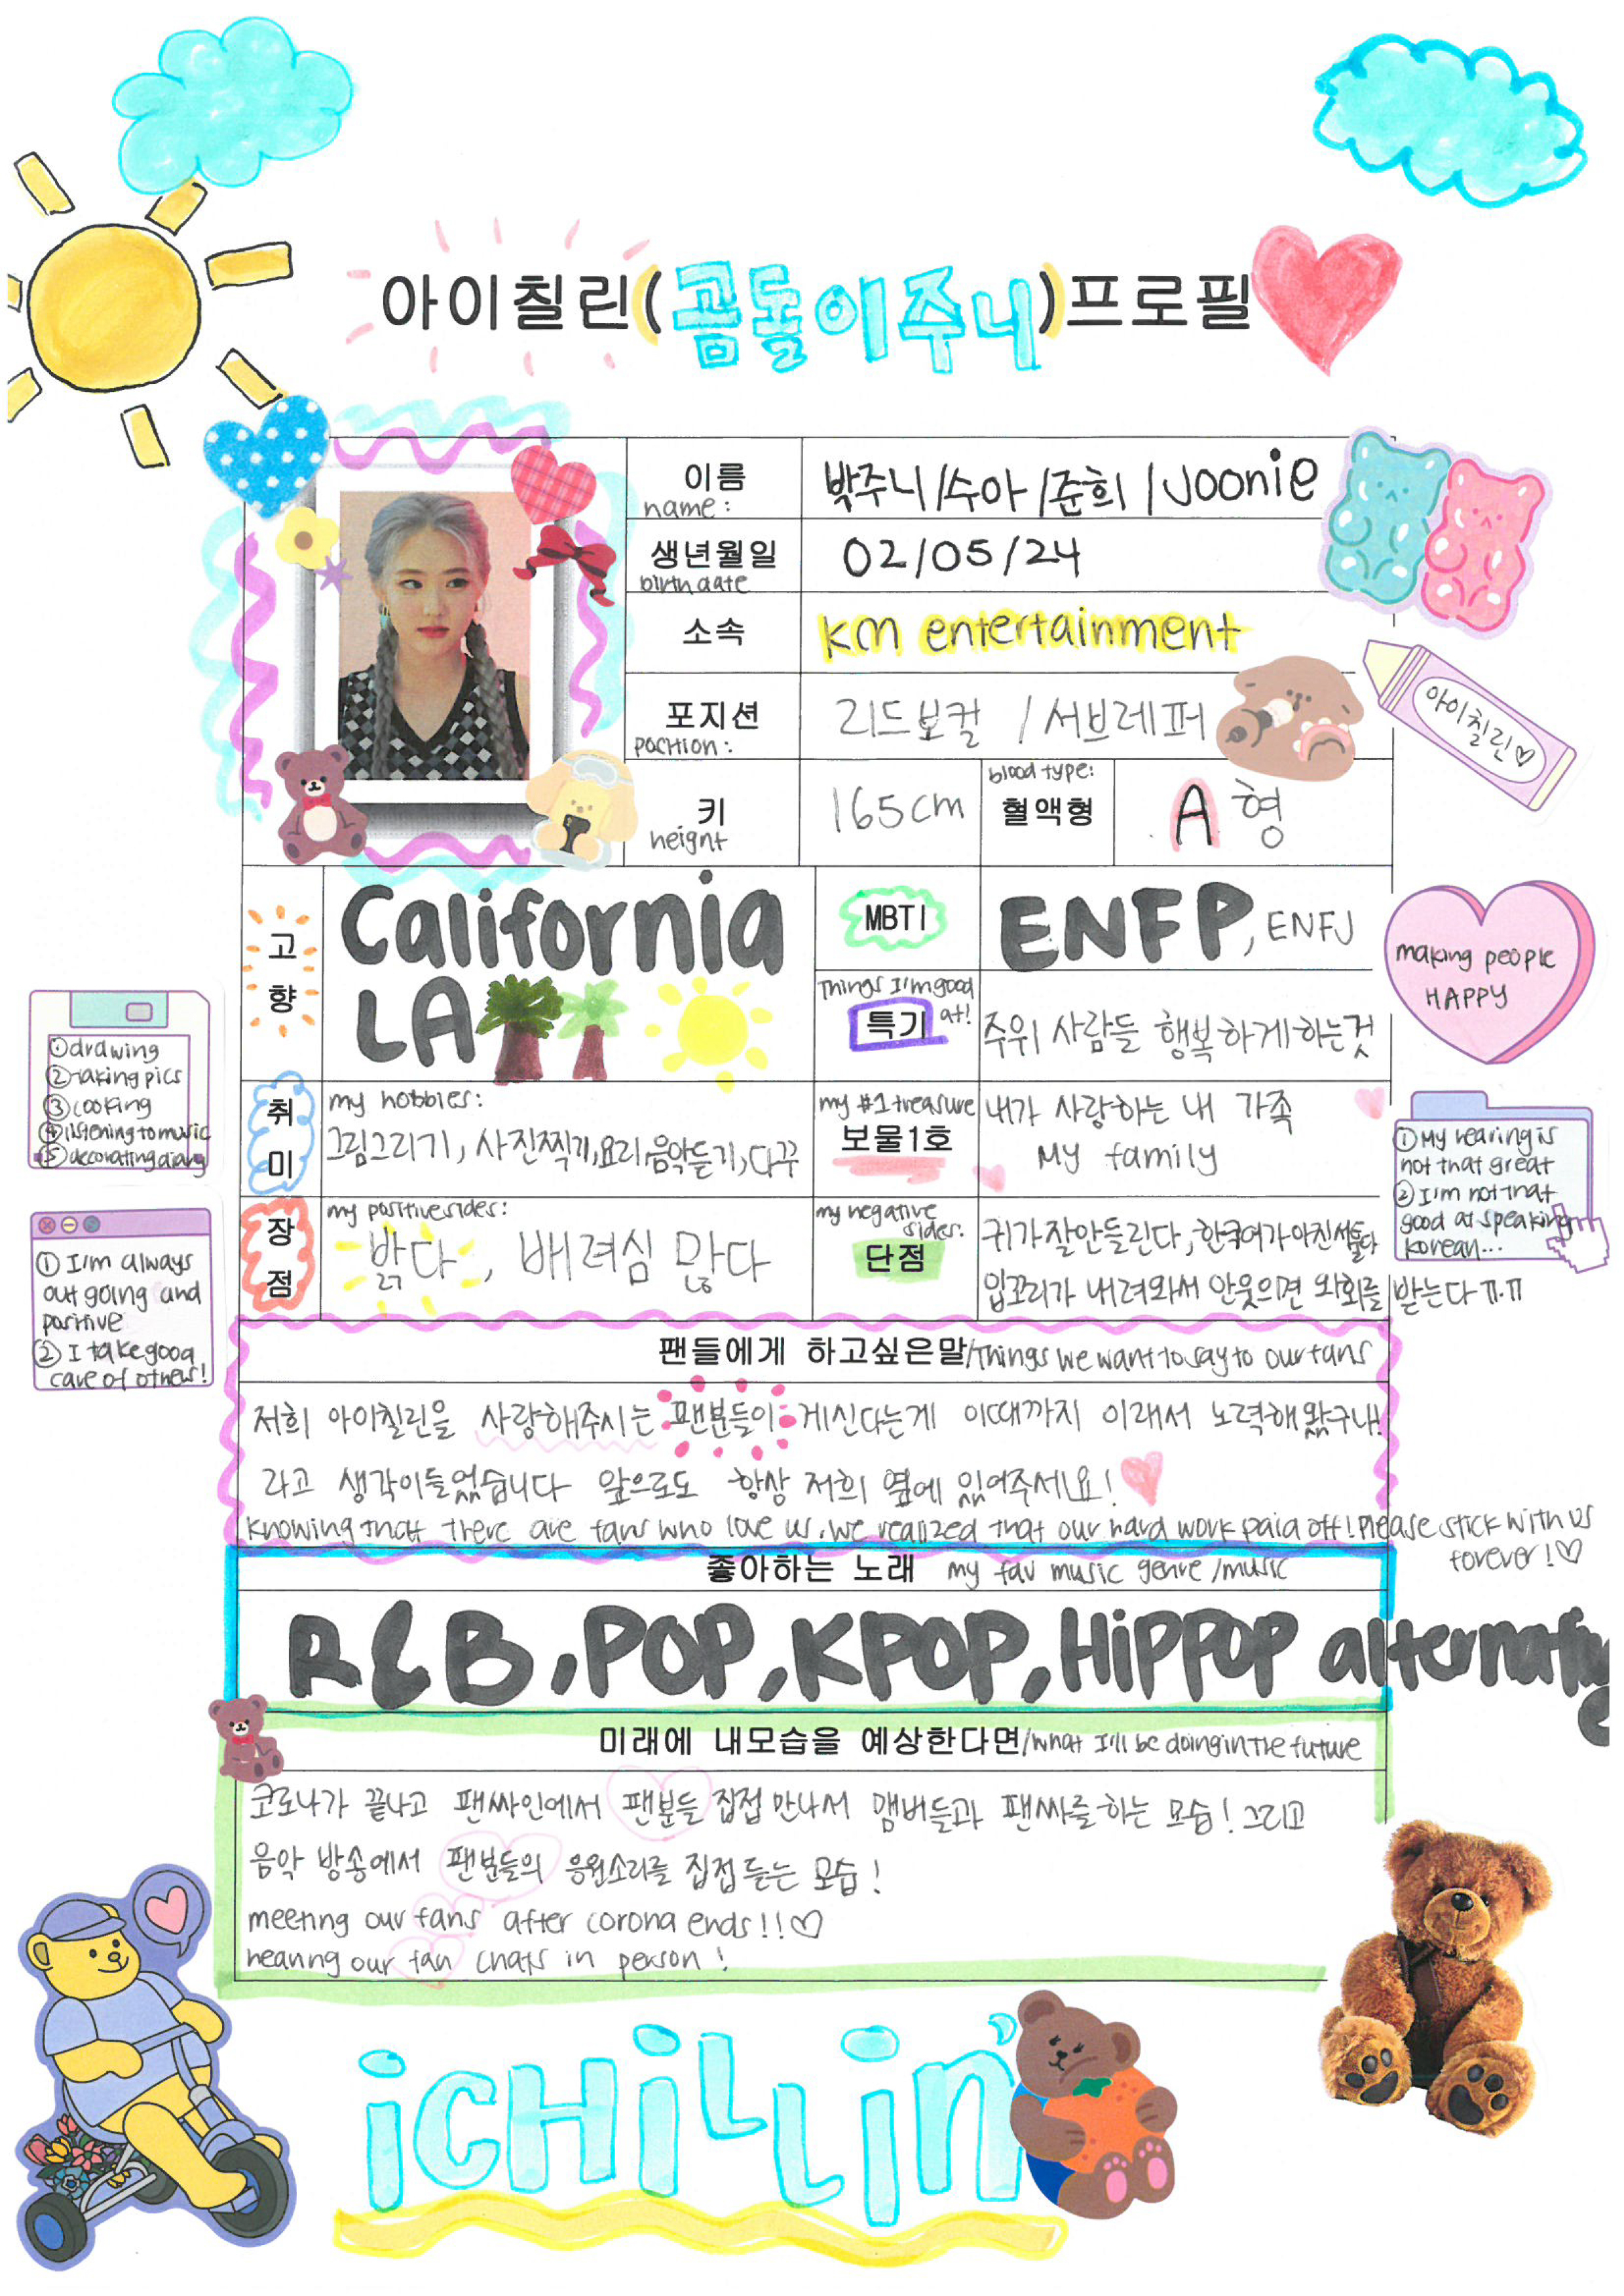 아이칠린(곰돌이주니)프로필
이름
name:
박주니/수아/준희/Joonie
생년월일
birthdate
02/05/24
소속
KM entertainment
포지션
position:
리드보컬 / 서브레퍼
아이칠린♡
키
height
165cm
blood type:
혈액형
A형
고향
California
LA
MBTI
ENFP, ENFJ
Things I'm good at!
특기
주위 사람들 행복하게하는것
making people
HAPPY
①drawing
②taking pics
③cooking
④listening to music
⑤decorating diary
취미
my hobbies:
그림그리기, 사진찍기, 요리, 음악듣기, 다꾸
my #1 treasure
보물1호
내가 사랑하는 내 가족
My family
①My hearing is
not that great
②I'm not that
good at speaking
korean...
장점
my positive sides:
밝다, 배려심 많다
my negative sides:
단점
귀가잘안들린다, 한국어가아진서툴다
입꼬리가 내려와서 안웃으면 와회를 받는다 ㅠ.ㅠ
① I'm always
out going and
positive
② I take good
care of others!
팬들에게 하고싶은말/Things we want to say to our fans
저희 아이칠린을 사랑해주시는 팬분들이 게신다는게 이때까지 이래서 노력해왔구나!
라고 생각이들었습니다 앞으로도 항상 저희 옆에 있어주세요!
Knowing that there are fans who love us, we realized that our hard work paid off! Please stick with us
forever!♡
좋아하는 노래 my fav music genre/music
R&B, POP, KPOP, HiPPOP alternative
미래에 내모습을 예상한다면/what I'll be doing in the future
코로나가 끝나고 팬싸인에서 팬분들 집접 만나서 맴버들과 팬싸를 하는 모습! 그리고
음악 방송에서 팬분들의 응원소리를 집접 듣는 모습!
meeting our fans after corona ends!!♡
hearing our fan chats in person!
iCHiLLiN'